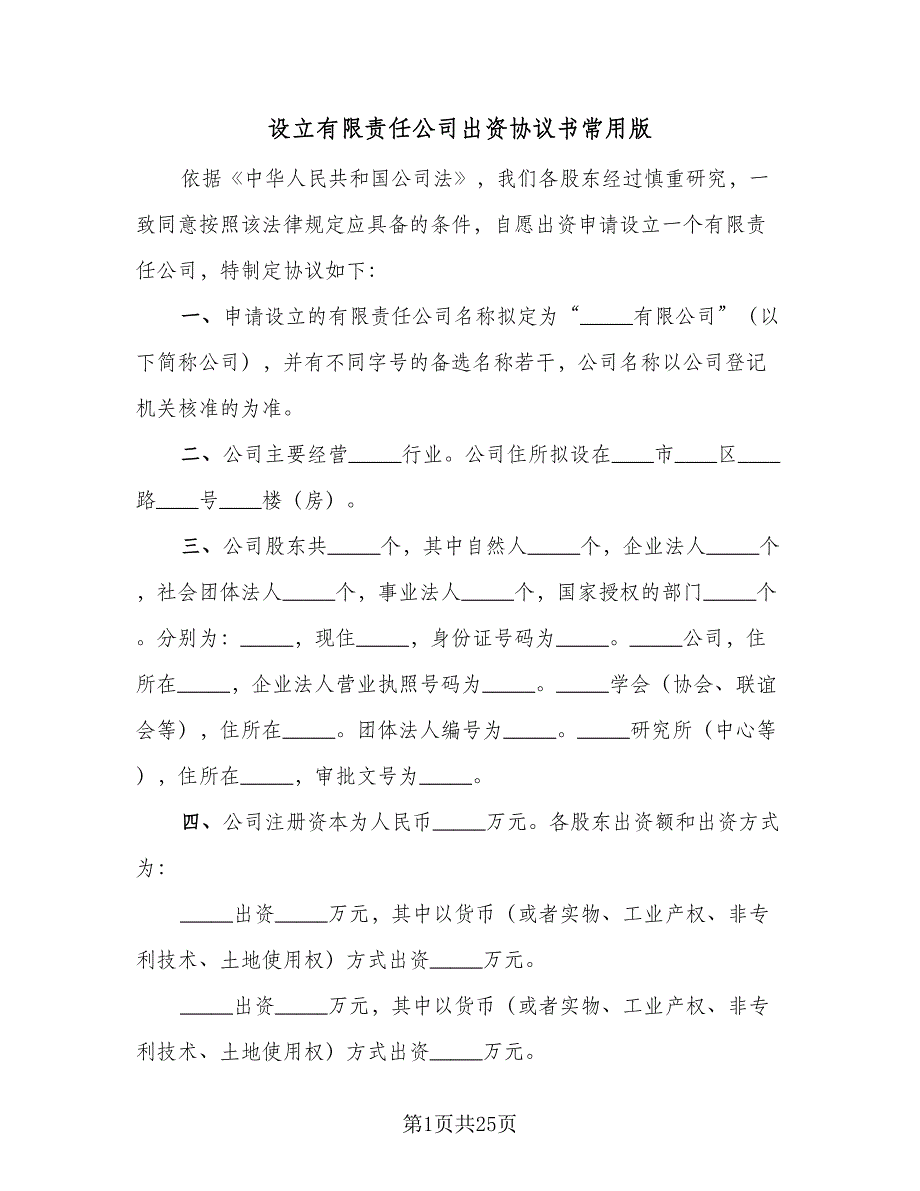 设立有限责任公司出资协议书常用版
依据《中华人民共和国公司法》，我们各股东经过慎重研究，一
致同意按照该法律规定应具备的条件，自愿出资申请设立一个有限责
任公司，特制定协议如下：
一、申请设立的有限责任公司名称拟定为“_____有限公司”（以
下简称公司），并有不同字号的备选名称若干，公司名称以公司登记
机关核准的为准。
二、公司主要经营_____行业。公司住所拟设在____市____区____
路____号____楼（房）。
三、公司股东共_____个，其中自然人_____个，企业法人_____个
，社会团体法人_____个，事业法人_____个，国家授权的部门_____个
。分别为：_____，现住_____，身份证号码为_____。_____公司，住
所在_____，企业法人营业执照号码为_____。_____学会（协会、联谊
会等），住所在_____。团体法人编号为_____。_____研究所（中心等
），住所在_____，审批文号为_____。
四、公司注册资本为人民币_____万元。各股东出资额和出资方式
为：
_____出资_____万元，其中以货币（或者实物、工业产权、非专
利技术、土地使用权）方式出资_____万元。
_____出资_____万元，其中以货币（或者实物、工业产权、非专
利技术、土地使用权）方式出资_____万元。
第1页共25页